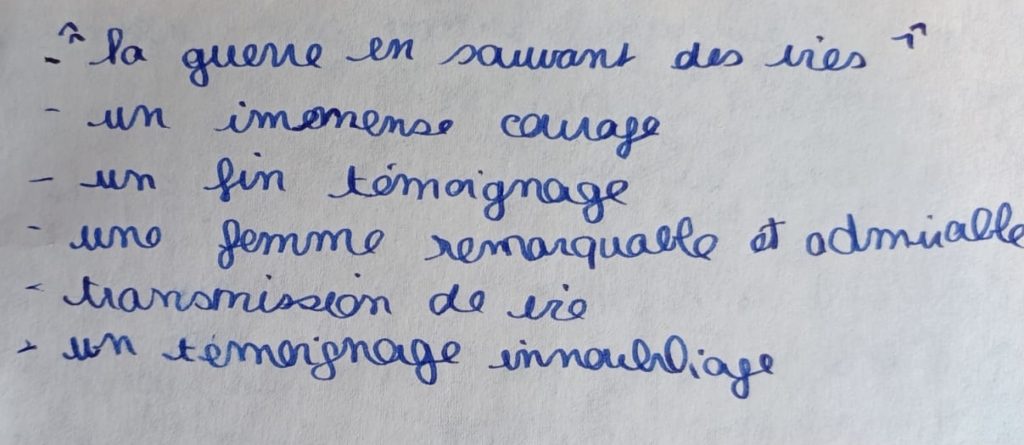 - " la guerre en sauvant des vies "
- un imemense courage
- un fin témoignage
- une femme remarquable et admirable
- transmission de vie
- un témoignage innoubliage